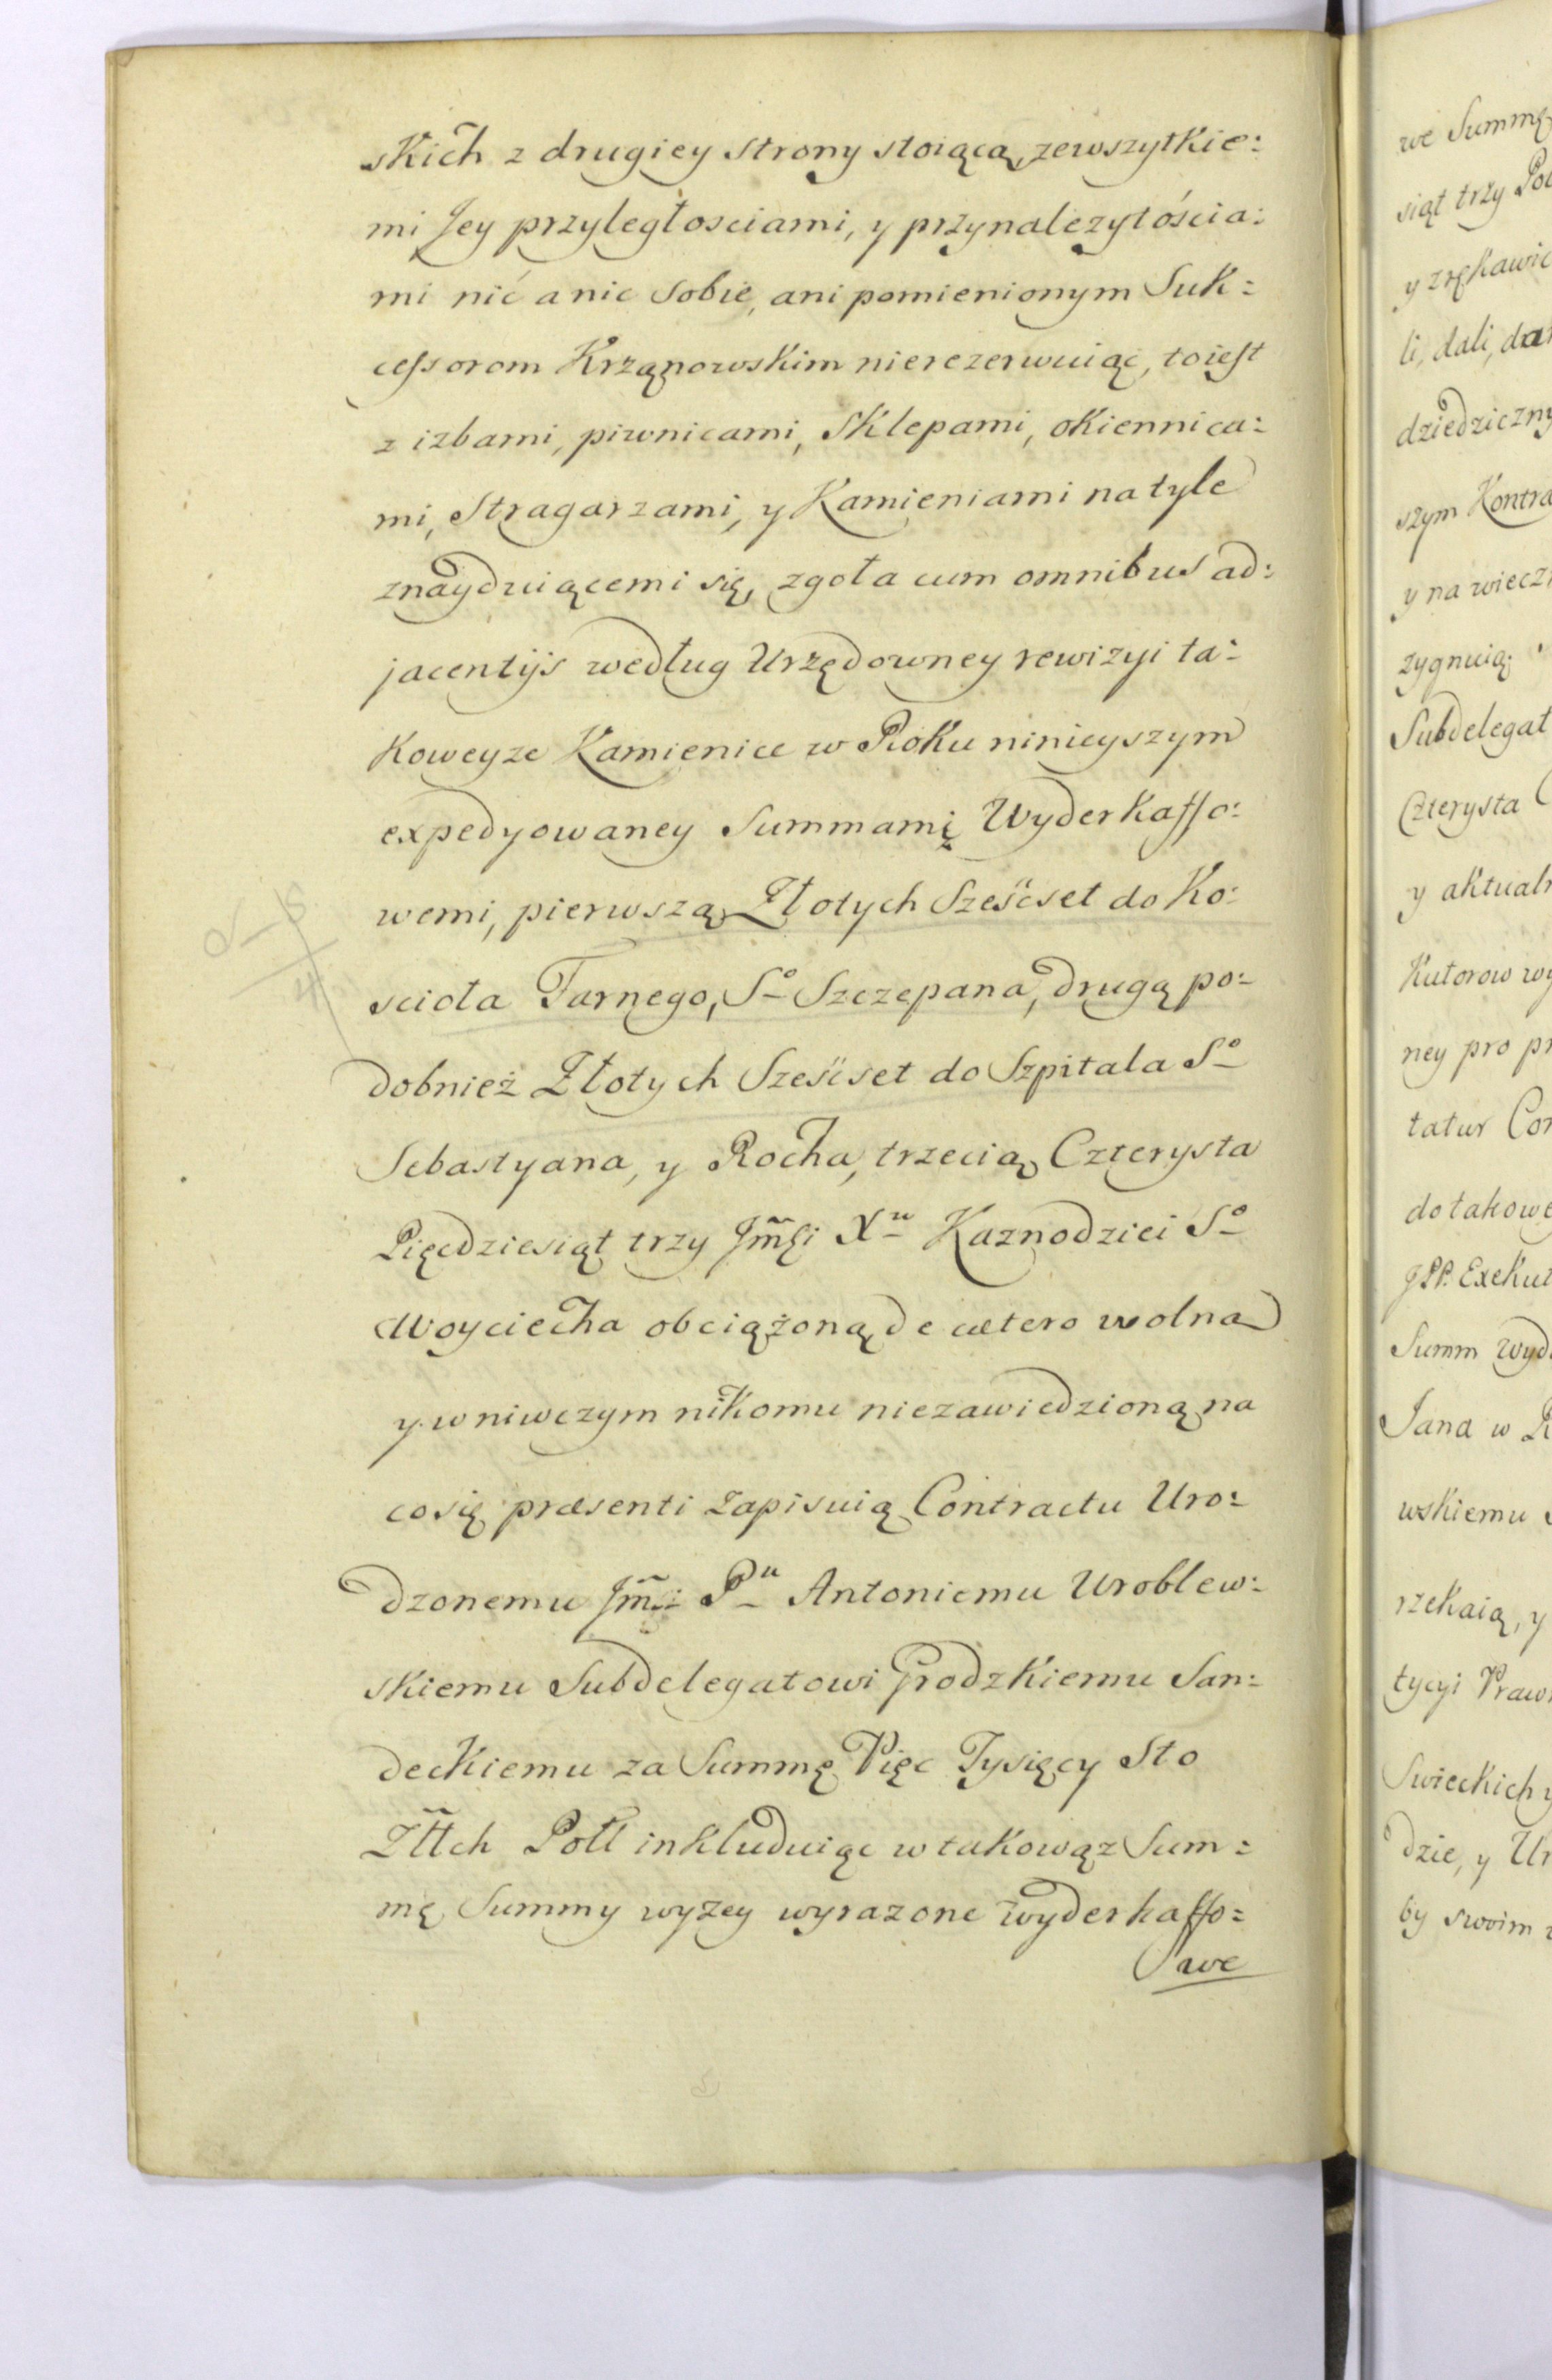 skich z drugiey strony stoiącą, zewszytkie:
mi Jey przyległosciami, y przynależytościa:
mi nić a nic sobie, ani pomienionym Suk:
cessorom Krząnowskim nierezerwuiąć, toiest
z izbami, piwnicami, sklepami, okiennica:
mi, Stragarzami, y Kamieniami na tyle
znayduiącemi się, zgoła cum omnibus ad:
jacentijs według Urzędowney rewizyi ta:
koweyze Kamienice w Roku ninieyszym
expedyowaney Summamį Wyderkaffo:
wemi, pierwszą Złotych Sześćset do Ko:
scioła Farnego, Sº Szczepana, drugą po:
dobnież Złotych Sześćset do Szpitala Sº
Sebastyana, y Rocha, trzecią Czterysta
Pięcdziesiąt trzy Jmści Xu Kaznodziei Sº
Woyciecha obciążoną de cætero wolną
y w niwczym nikomu niezawiedzioną na
co się præsenti zapisuią Contractu Uro:
dzonemu Jmci Pu Antoniemu Wroblew:
skiemu Subdelegatowi Grodzkiemu San:
deckiemu za Summę Pięc Tysięcy Sto
Złłch Poll inkluduiąc w takowąz Sum:
mę Summy wyzey wyrazone wyderkaffo:
we
we Summę
siąt trzy Pol
y zrękawic
li, dali, dar
dziedziczny
szym Kontra
y na wiecz
zygnuią
Subdelegat
Czterysta
y aktualn
Kutorow wy
ney pro pr
tatur Con
do takowe
JPP. Exekut
Summ wyd
Jana w R
wskiemu
rzekaią, y
tycyi Praw
Swieckich y
dzie, y Ur
by swoim